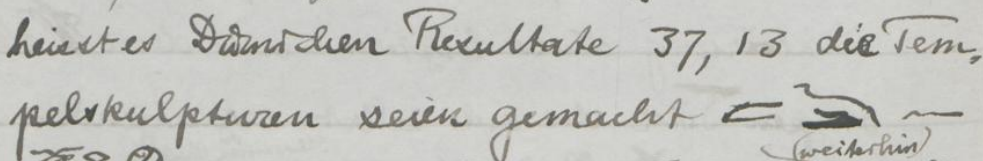 heisst es Dümichen Resultate 37, 13 die Tem-
pelskulpturen seien gemacht
(weiterhin)